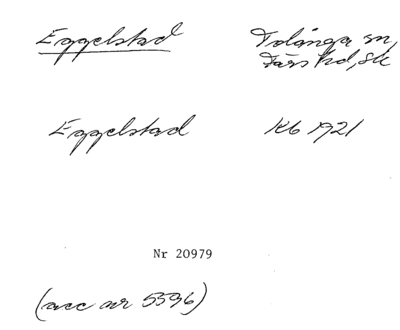 Eggelstad Tolånga sn,
Färs hd, Sk
Eggelstad Kb 1921
Nr 20979
(acc nr 5596)